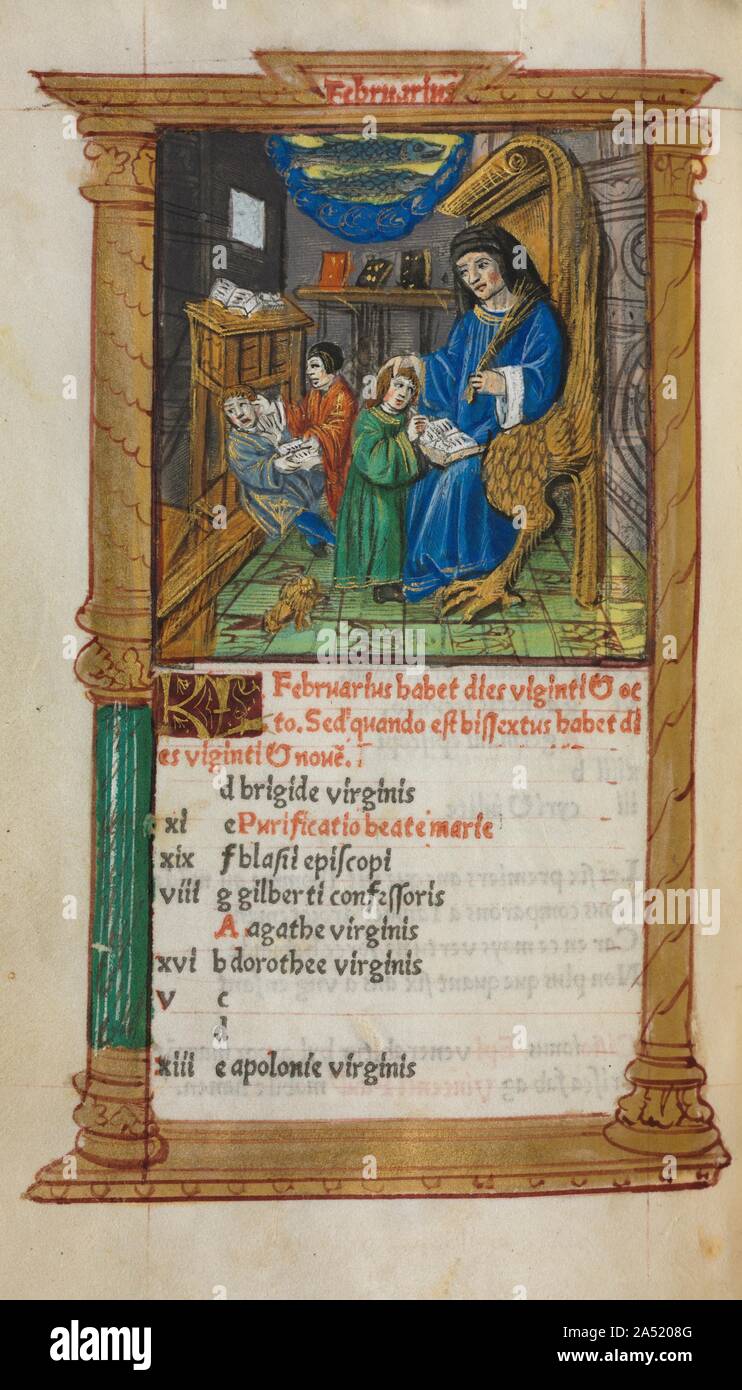 Februarius
KL Februarius habet dies viginti & oc
to. Sed quando est bissextus habet di
es viginti & nouē.
d brigide virginis
xi e Purificatio beate marie
xix f blasii episcopi
viii g gilberti confessoris
A agathe virginis
xvi b dorothee virginis
v c
d
xiii e apolonie virginis
alamy
Image ID: 2A5208G
www.alamy.com